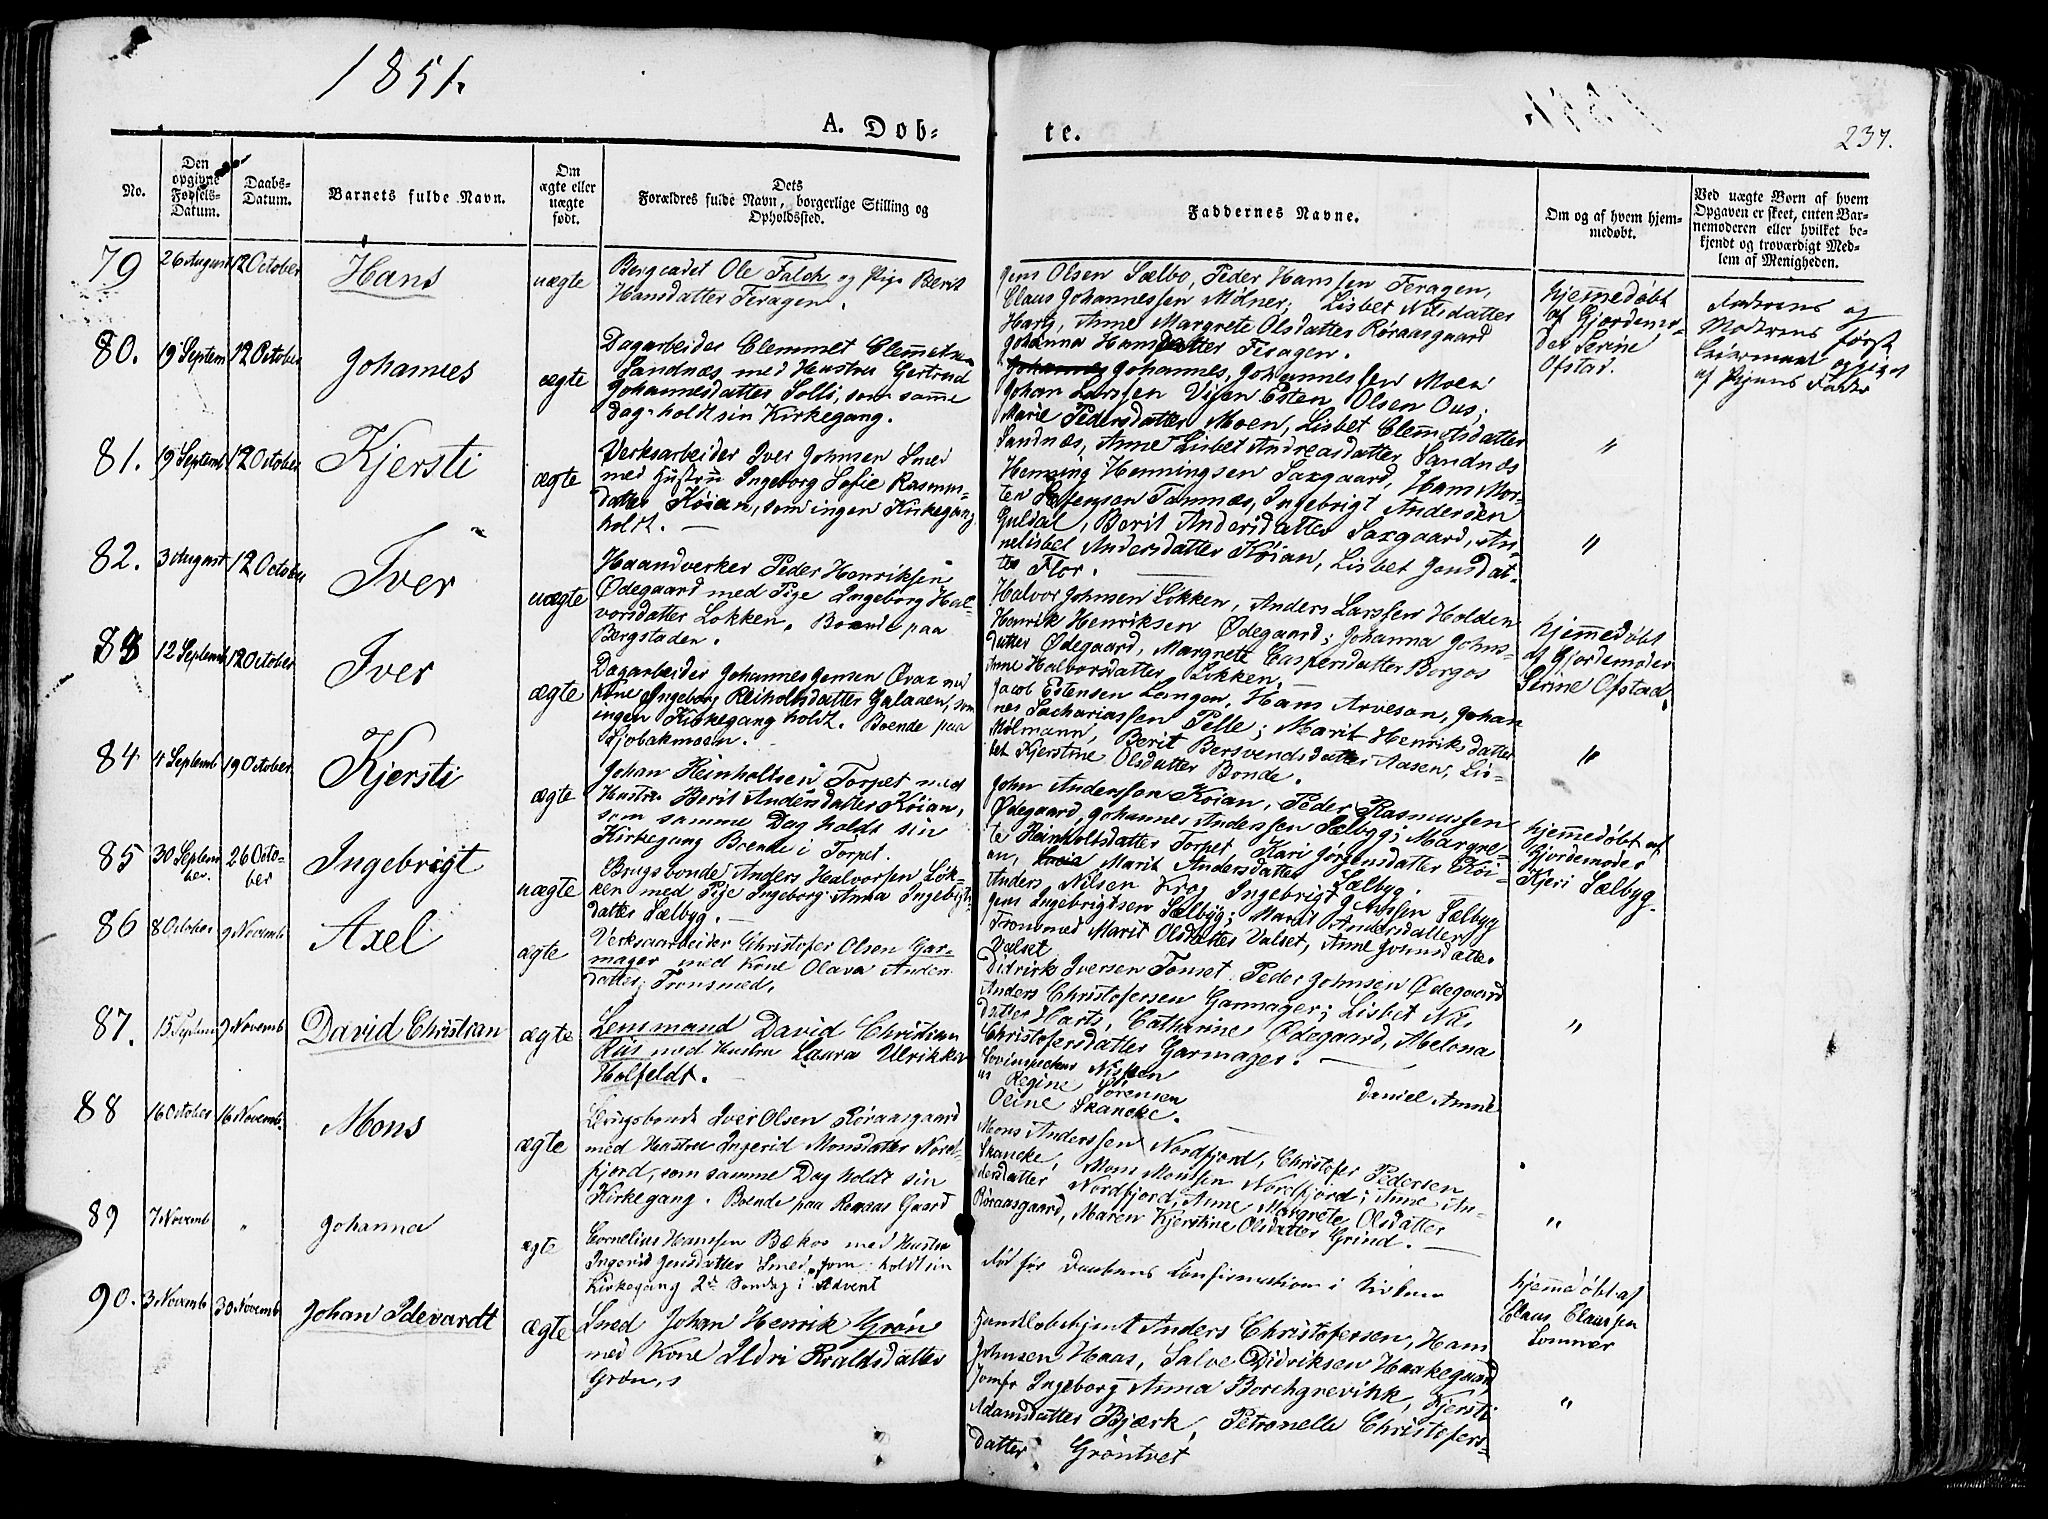 1851.
A. Døb-
te.
237.
No.
Den opgivne Fødsels-Datum.
Daabs-Datum.
Barnets fulde Navn.
Om ægte eller uægte født.
Forældres fulde Navn, Dets borgerlige Stilling og Opholdssted.
Faddernes Navne.
Om og af hvem hjemmedøbt.
Ved uægte Børn af hvem
Opgaven er skeet, enten Bar-
nemoderen eller hvilket be-
kjendt og troværdigt Med-
lem af Menigheden.
79 26 August 12 October Hans uægte
Bergcadet Ole Falck og Pige Berit
Hansdatter Feragen.
Jens Olsen Sælbo, Peder Hanssen Feragen,
Claus Johannessen Mølner; Lisbet Nilsdatter
Harts, Anne Margrete Olsdatter Røraasgaard
Johanna Hansdatter Feragen.
hjemmedøbt
af Gjordemo-
der Serine
Ofstad.
Faderens og
Moderens først
Leiermaal opgivet
af Pigens Fader
80. 19 Septem 12 October Johannes ægte
Dagarbeider Clemmet Clemetsen
Sandnæs med Hustru Gertrud
Johannesdatter Solli, som samme
Dag holdt sin Kirkegang.
Johannes Johannessen Moen
Johan Larssen Visen Esten Olsen Ous;
Marie Pedersdatter Moen, Lisbet Clemetsdatter
Sandnæs, Anne Lisbet Andreasdatter Sandnæs
"
81. 19 Septemb 12 October Kjersti ægte
Verksarbeider Iver Johnsen Smed
med Hustru Ingeborg Sofie Rasmus-
datter Köian, som ingen Kirkegang
holdt.
Henning Henningsen Saxgaard, Hans Mor-
tensen Tamnæs, Ingebrigt Andersen
Guldal, Berit Andersdatter Saxgaard, An-
nelisbet Andersdatter Köian, Lisbet Jensdat-
ter Flor.
"
82. 3 August 12 October Iver uægte
Haandverker Peder Henriksen
Ødegaard med Pige Ingeborg Hal-
vorsdatter Løkken. Boende paa
Bergstaden.
Halvor Johnsen Løkken, Anders Larssen Holden
Henrik Henriksen Ødegaard; Johanna Johns-
datter Ødegaard, Margrete Caspersdatter Borgos
Anne Halvorsdatter Løkken.
hjemmedøbt
af Gjordemoder
Serine Ofstad.
83 12 Septemb 12 October Iver ægte
Dagarbeider Johannes Jensen Øvax med
Kone Ingeborg Reiholtsdatter Galaaen, som
ingen Kirkegang holdt. Boende paa
Gjøsbakmoen.
Jacob Estensen Langen, Hans Arvesen, Johan
nes Sachariassen Pelle; Marit Henriksdatter
Mølmann, Berit Bersvendsdatter Aasen, Lis-
bet Kjerstine Olsdatter Bonde.
"
84 4 Septemb 19 October Kjersti ægte
Johan Reinholtsen Torpet med
Hustru Berit Andersdatter Köian,
som samme Dag holdt sin
Kirkegang Boende i Torpet.
John Anderssen Köian, Peder Rasmussen
Ødegaard, Johannes Anderssen Sælbyg; Margre-
te Reinholtsdatter Torpet Kari Jørgensdatter Köi-
an, Marit Andersdatter Sælbyg.
85 30 Septem
ber. 26 Octo-
ber Ingebrigt uægte
Brugsbonde Anders Halvorsen Løk-
ken med Pige Ingeborg Anna Ingebrigts-
datter Sælbyg.
Anders Nilsen Krog Ingebrigt Jenssen Sælbyg
Jens Ingebrigtsen Sælbyg; Marit Andersdatter
Tronsmed Marit Olsdatter Valset, Anne Johnsdatter
Valset
hjemmedøbt af
Gjordemoder
Kjeri Sælbyg.
86 8 October 9 Novemb Axel ægte
Verksarbeider Christofer Olsen Gar-
mager med Kone Olava Anders
datter Tronsmed.
Didrik Iversen Tomset Peder Johnsen Ødegaard
Anders Christofersen Garmager; Lisbet Nils
datter Harts, Catharine Ødegaard, Abelona
Christofersdatter Garmager.
"
87. 15 Septem 9 Novemb David Christian ægte
Lensmand David Christian
Riis med Hustru Laura Ulrikke
Holfeldt.
Nissen
Regine Sörensen
Oeine Skancke.
Daniel Anne
88 16 October 16 Novemb Mons ægte
Brugsbonde Iver Olsen Røraasgaard
med Hustru Ingerid Monsdatter Nord-
fjord, som samme Dag holdt sin
Kirkegang. Boende paa Røraas Gaard
Mons Anderssen Nordfjord, Christofer Pedersen
Skancke, Mons Monsen Nordfjord; Anne An-
dersdatter Nordfjord, Anne Margrete Olsdatter
Røraasgaard, Maren Kjerstine Olsdatter Grind.
"
89 7 Novemb " Johanna ægte
Cornelius Hanssen Bækos med Hustru
Ingerid Jensdatter Smed, som holdt sin
Kirkegang 2den Søndag i Advent
Död før Daabens Confirmation i Kirken
hjemmedøbt af
Claus Claussen
Lomner
90. 3 Novemb 30 Novemb Johan Edevardt ægte
Smed Johan Henrik Grøn
med Kone Ildri Roaldsdatter
Grøn,
Anders Christofersen, Hans
Johnsen Haas, Salve Didriksen Haakegaard
Jomfr Ingeborg Anna Borchgrevink, Kjersti
Adamsdatter Bjærk, Petronelle Christofers-
datter Gröntvet
"